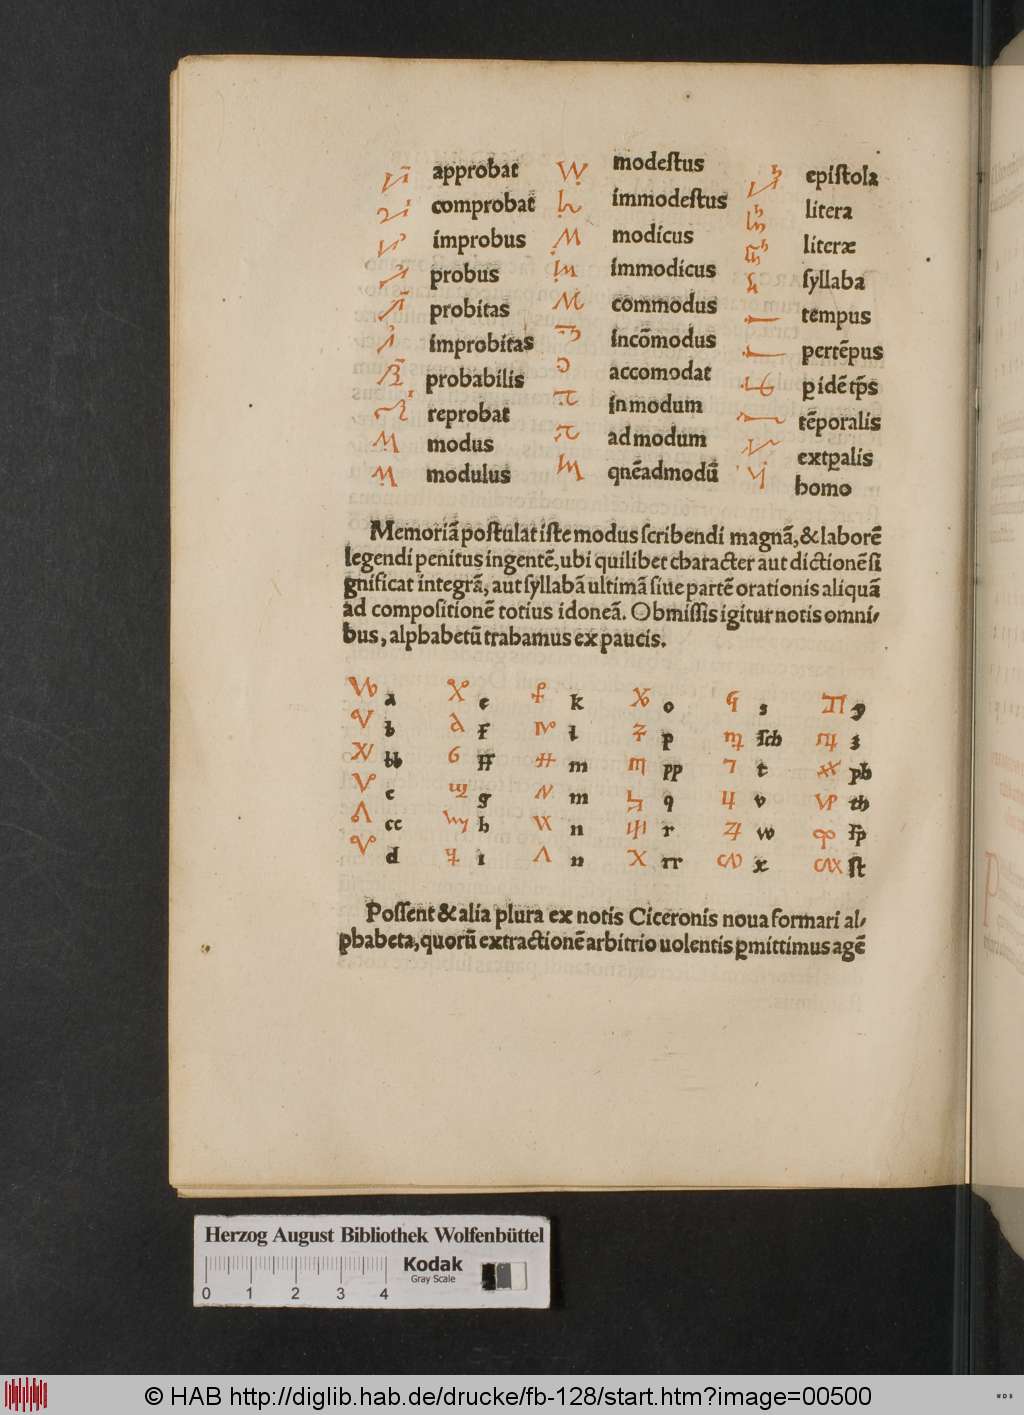 approbat
comprobat
improbus
probus
probitas
improbitas
probabilis
reprobat
modus
modulus
modeſtus
immodeſtus
modicus
immodicus
commodus
incōmodus
accomodat
in modum
ad modum
qnēadmodū
epiſtola
litera
literæ
ſyllaba
tempus
pertēpus
ꝑ idē tꝑs
tēporalis
extꝑalis
homo
Memoriā poſtulat iſte modus ſcribendi magnā, & laborē
legendi penitus ingentē, ubi quilibet character aut dictionē ſi
gnificat integrā, aut ſyllabā ultimā ſiue partē orationis aliquā
ad compoſitionē totius idoneā. Obmiſſis igitur notis omni-
bus, alphabetū trahamus ex paucis.
a
b
bb
c
cc
d
e
f
ff
g
h
i
k
l
m
m
n
n
o
p
pp
q
r
rr
s
ſch
t
v
w
x
y
z
ph
th
ſp
ſt
Poſſent & alia plura ex notis Ciceronis noua formari al-
phabeta, quorū extractionē arbitrio uolentis ꝑmittimus agē
Herzog August Bibliothek Wolfenbüttel
Kodak
Gray Scale
0 1 2 3 4
© HAB http://diglib.hab.de/drucke/fb-128/start.htm?image=00500
WDB